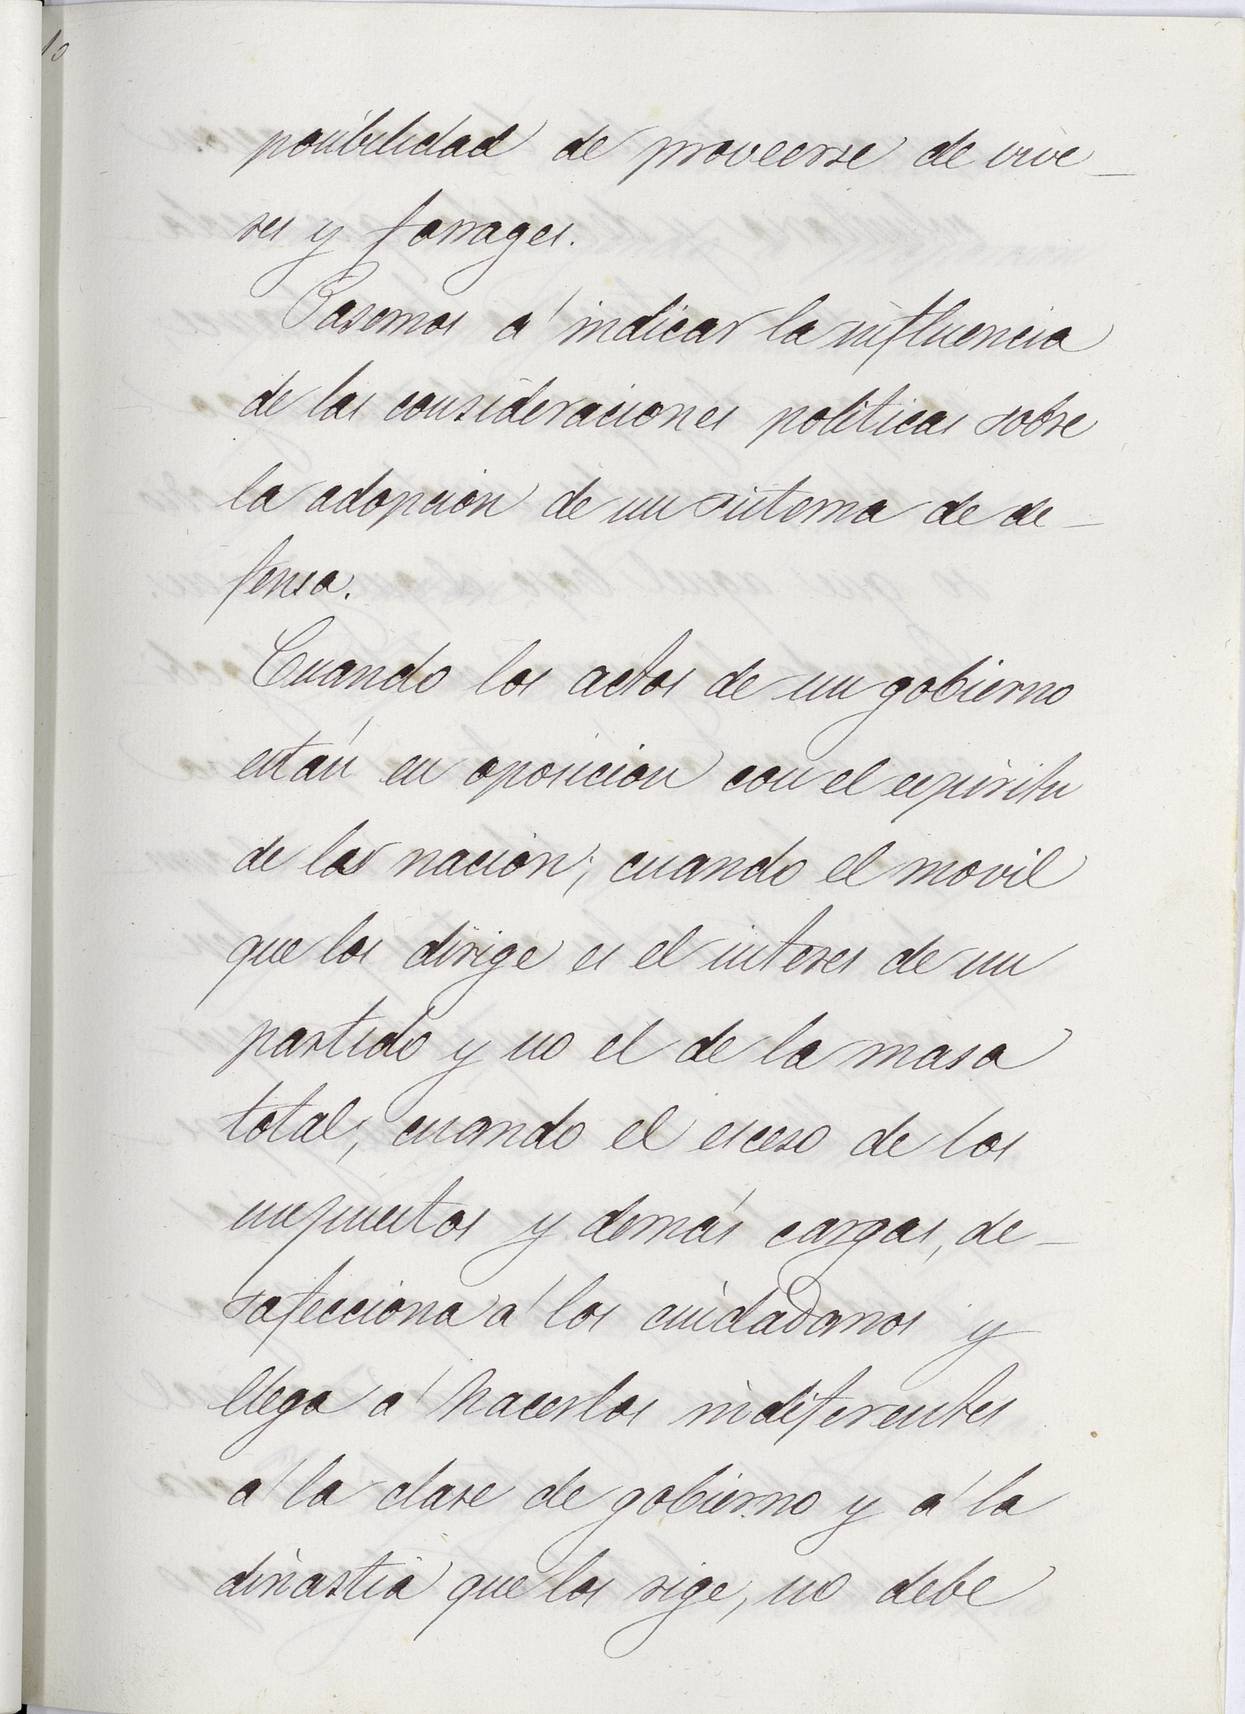 10
posibilidad de proveerse de vive-
res y forrages.
Pasemos á indicar la influencia
de las consideraciones politicas sobre
la adopcion de un sistema de de-
fensa.
Cuando los actos de un gobierno
están en oposicion con el espiritu
de las nacion; cuando el movil
que los dirige es el interes de un
partido y no el de la masa
total; cuando el esceso de los
impuestos y demás cargas, de-
safecciona á los ciudadanos y
llega á hacerlos indiferentes
á la clase de gobierno y á la
dinastia que los rige, no debe